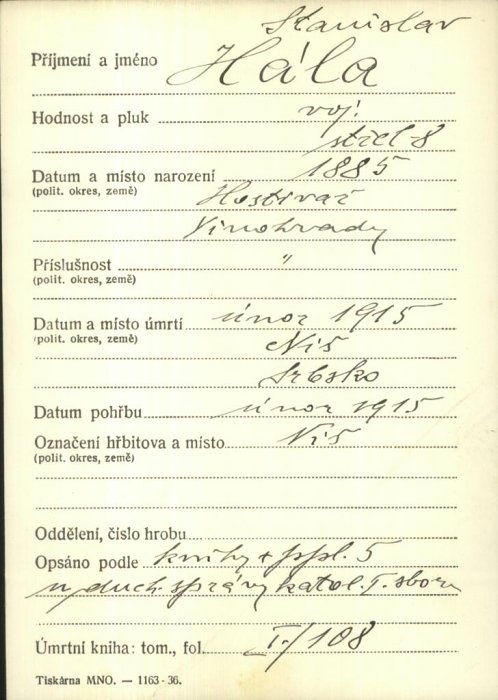 Stanislav
Příjmení a jméno Hála
Hodnost a pluk voj.
střel-8
Datum a místo narození 1885
(polit. okres, země) Hostivař
Vinohrady
Příslušnost "
(polit. okres, země)
Datum a místo úmrtí únor 1915
(polit. okres, země) Niš
Srbsko
Datum pohřbu únor 1915
Označení hřbitova a místo Niš
(polit. okres, země)
Oddělení, číslo hrobu
Opsáno podle knihy + ppl. 5
duch. správy katol. I. sboru
Úmrtní kniha: tom., fol. I./108
Tiskárna MNO. — 1163-36.